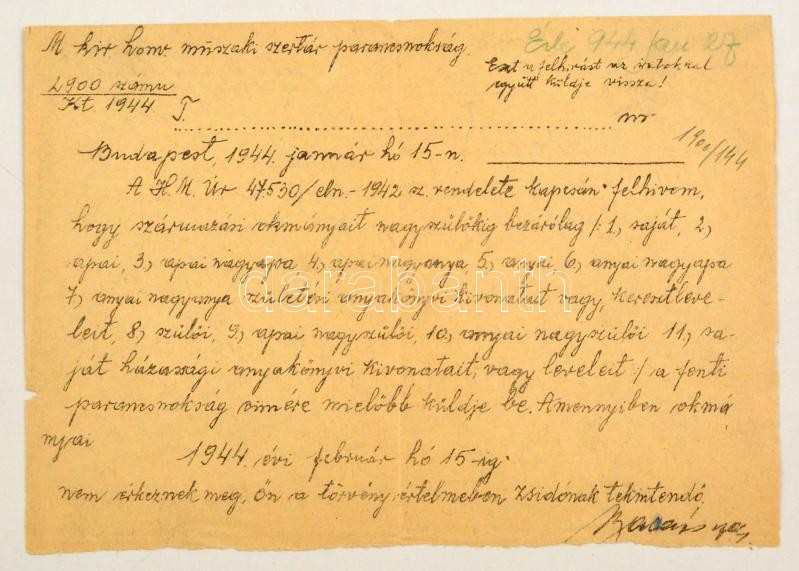 M. kir. honv műszaki szertár parancsnokság.
Érk 944 jan 27
Ezt a felhivást az iratokkal
együtt küldje vissza!
2900 számu
Kt. 1944.
T. nr
1900/144
Budapest, 1944. január hó 15-n.
A H.M. Úr 47.530/eln.-1942 sz. rendelete kapcsán felhivom,
hogy származási okmányait nagyszülőkig bezárólag /: 1, saját, 2,
apai, 3, apai nagyapa 4, apai nagyanya 5, anyai 6, anyai nagyapa
7, anyai nagyanya születési anyakönyvi kivonatait vagy, keresztleve-
leit, 8, szülői, 9, apai nagyszülői, 10, anyai nagyszülői 11, sa-
ját házassági anyakönyvi kivonatait, vagy leveleit :/ a fenti
parancsnokság cimére mielőbb küldje be. Amennyiben okmá
nyai
1944. évi február hó 15-ig
nem érkeznek meg, Ön a törvény értelmében zsidónak tekintendő.
darabanth